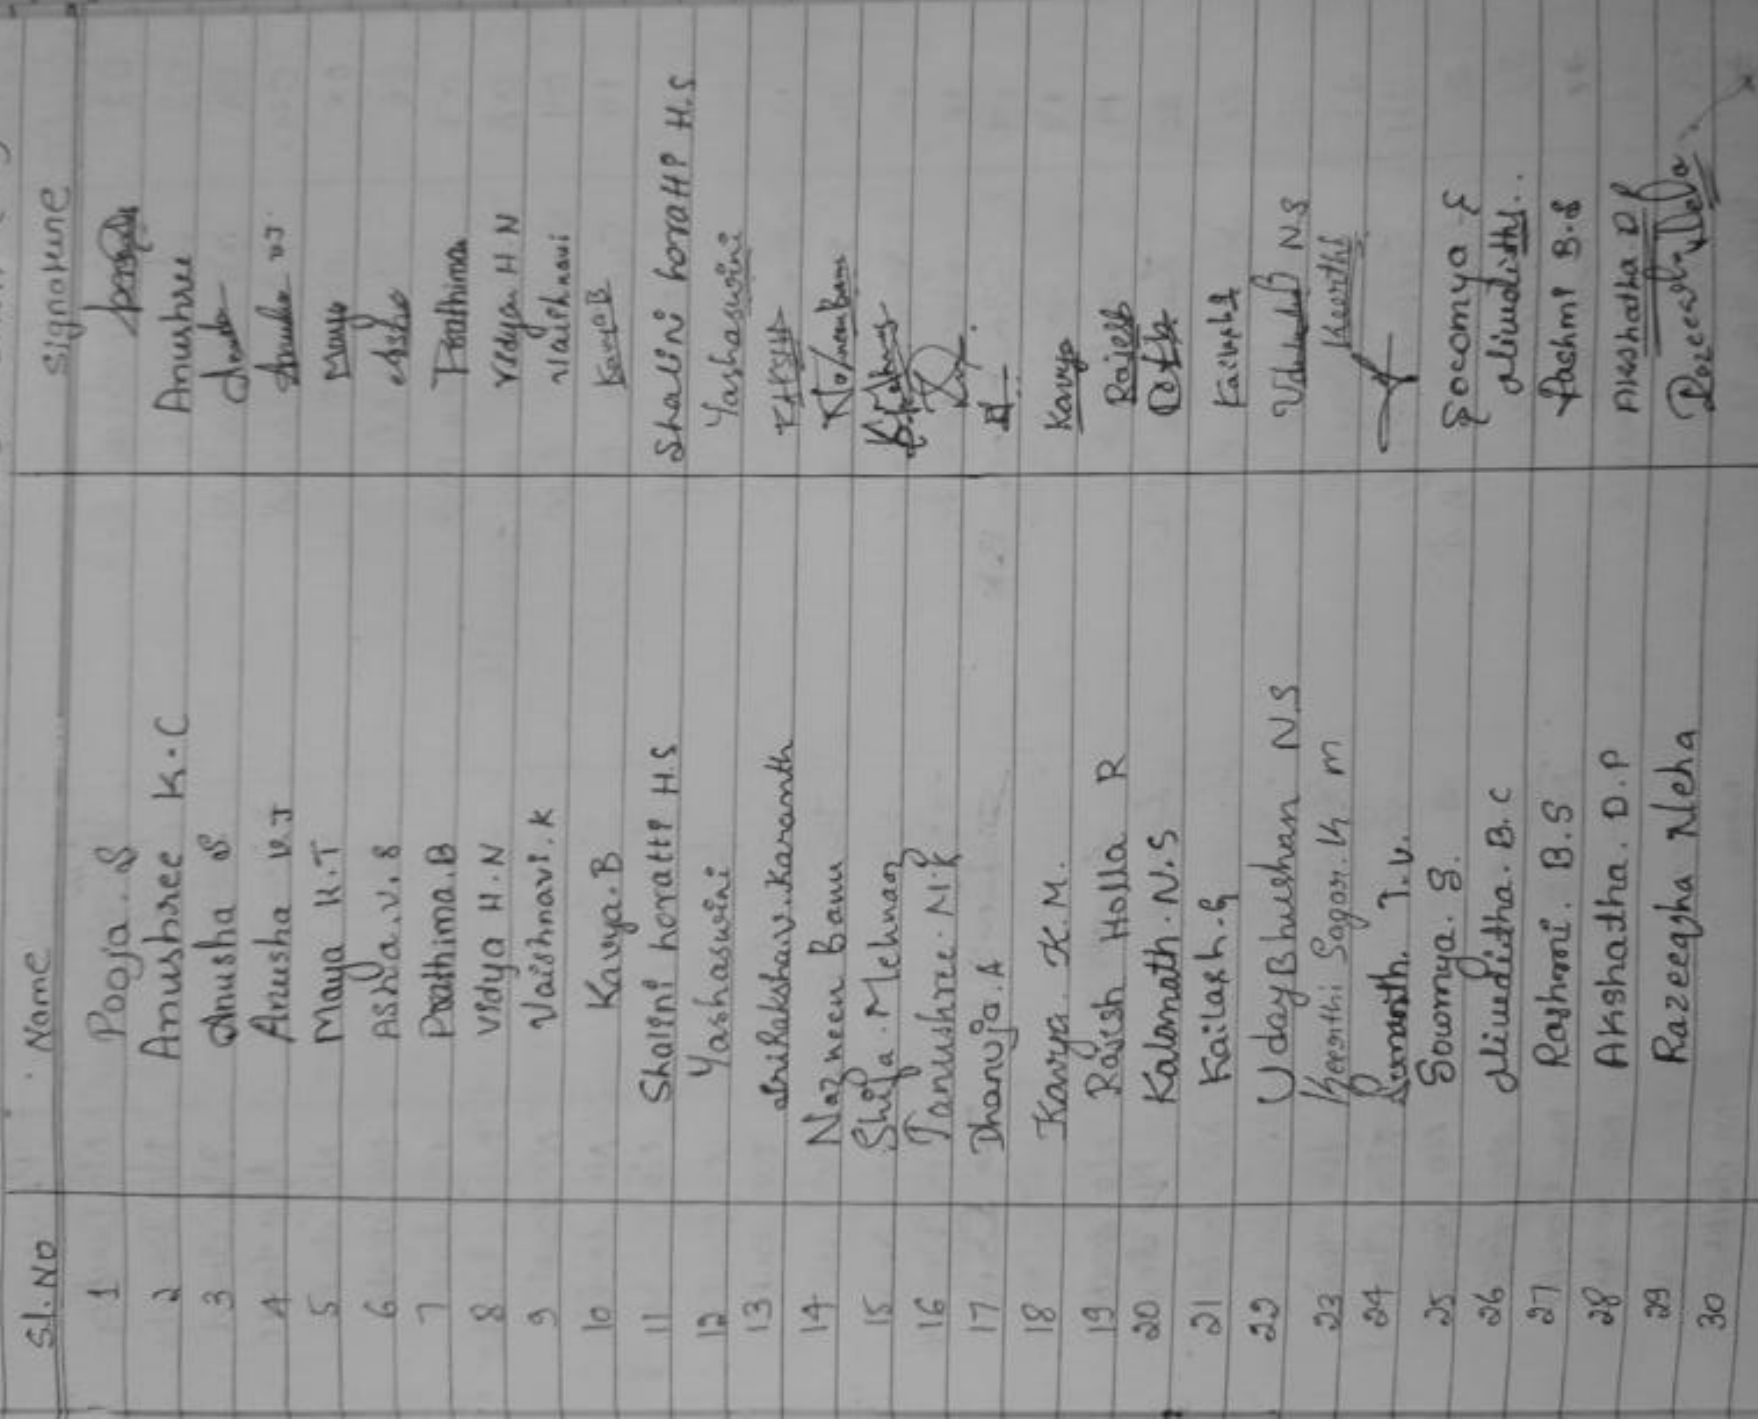 Sl.No Name Signature
1 Pooja.S
2 Anushree K.C Anushree
3 Anusha S
4 Anusha V.J
5 Maya K.T Maya
6 Asha.V.S Asha
7 Prathima.B Prathima
8 Vidya H.N Vidya H N
9 Vaishnavi.K Vaishnavi
10 Kavya.B Kavya B
11 Shalini horatti H.S Shalini horatti H.S
12 Yashaswini Yashaswini
13 SriRaksha.V.Karanth
14 Nazneen Banu
15 Shifa.Mehnaz
16 Tanushree.N.P
17 Dhanuja.A
18 Kavya.K.M. Kavya
19 Rajesh Holla R Rajesh
20 Kalanath.N.S
21 Kailash.G
22 UdayBhushan N.S N.S
23 Keerthi Sagar.K m Keerthi
24 T.V.
25 Sowmya.S. Sowmya S
26 Niveditha.B.C
27 Rashmi.B.S Rashmi B.S
28 Akshatha.D.P Akshatha D P
29 Razeeqha Neha
30